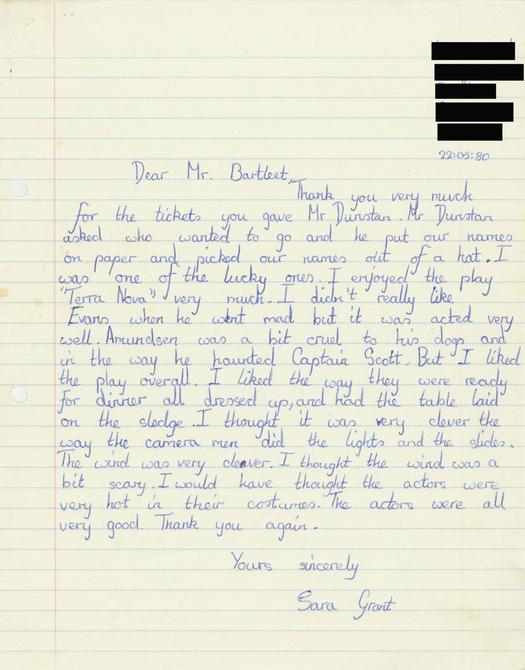 22:05:80
Dear Mr. Bartleet,
Thank you very much
for the tickets you gave Mr Dunstan. Mr Dunstan
asked who wanted to go and he put our names
on paper and picked our names out of a hat. I
was one of the lucky ones. I enjoyed the play
"Terra Nova" very much. I didn't really like
Evans when he went mad but it was acted very
well. Amundsen was a bit cruel to his dogs and
in the way he haunted Captain Scott. But I liked
the play overall. I liked the way they were ready
for dinner all dressed up, and had the table laid
on the sledge. I thought it was very clever the
way the camera men did the lights and the slides.
The wind was very clever. I thought the wind was a
bit scary. I would have thought the actors were
very hot in their costumes. The actors were all
very good. Thank you again.
Yours sincerely
Sara Grant